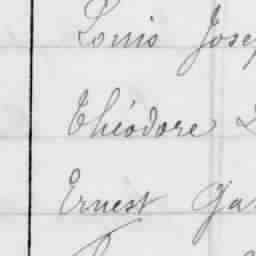 Louis Josep
Théodore
Ernest Ga